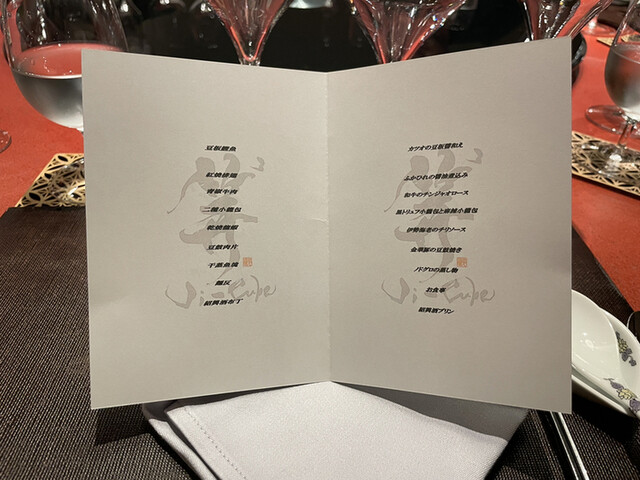 豆板鰹魚
紅焼排翅
青椒牛肉
二種小籠包
乾焼龍蝦
豆豉肉片
干蒸魚
麺反
紹興酒布丁
Ji-Cube
カツオの豆板醤和え
ふかひれの醤油煮込み
和牛のチンジャオロース
黒トリュフ小籠包と麻辣小籠包
伊勢海老のチリソース
金華豚の豆豉焼き
ノドグロの蒸し物
お食事
紹興酒プリン
Ji-Cube